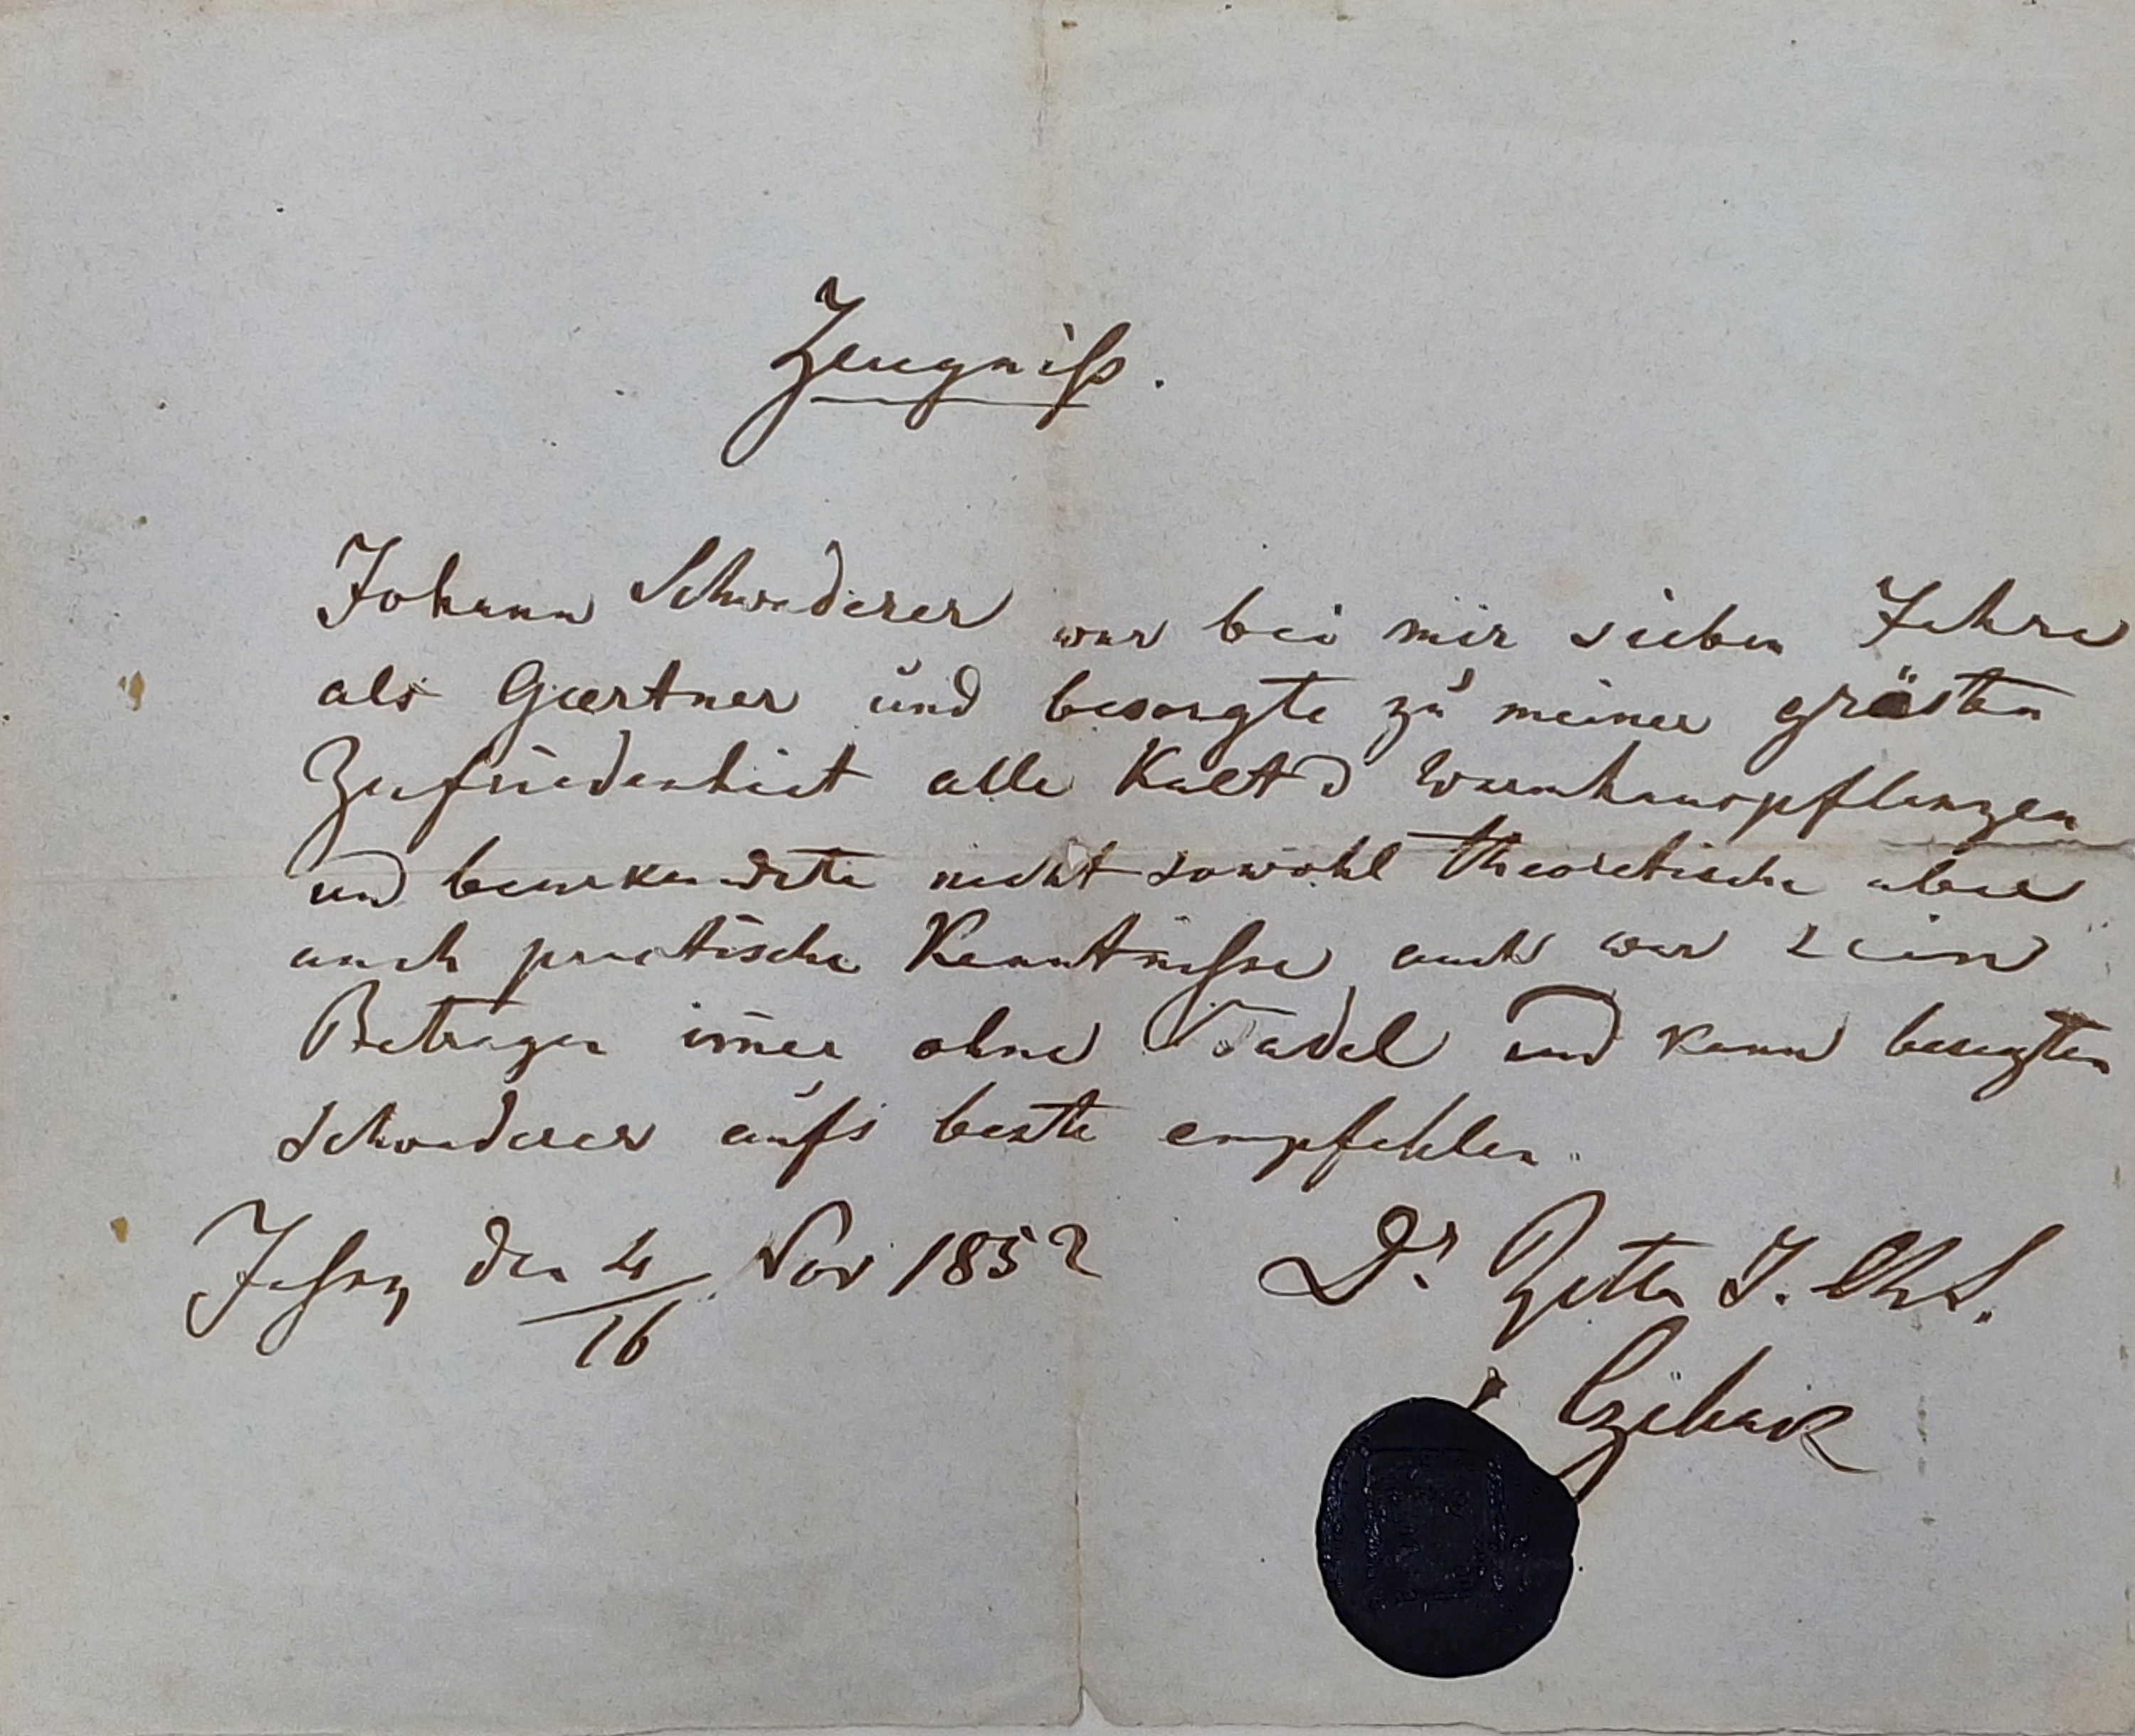 Zeugniß.
Johann Schwederer war bei mir sieben Jahre
als Gaertner und besorgte zu meiner grösten
Zufriedenheit alle Kalt d Warmhauspflanzen
und beurkundete nicht sowohl theoretische aber
auch practische Kenntniße auch war sein
Betragen im̄er ohne Tadel und kann besagten
Schwederer aufs beste empfehlen.
Jassy den 4/16 Nov 1852 Dr
Czihak